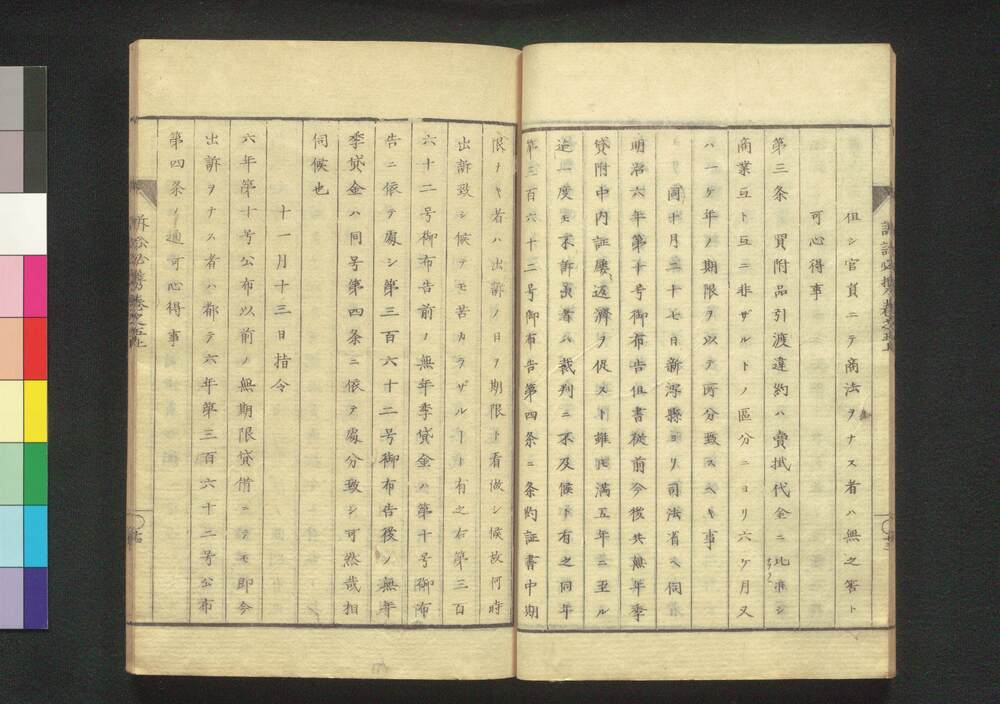 但シ官員ニテ商法ヲナス者ハ無之筈ト
可心得事
第三条　買附品引渡違約ハ賣拭代金ニ比準シ
商業互ト互ニ非ザルトノ區分ニヨリ六ケ月又
ハ一ケ年ノ期限ヲ以テ所分致スヘキ事
同十月二十七日新潟縣ヨリ司法省ヘ伺
明治六年第十号御布告但書從前今後共無年季
貸附中内証屡返濟ヲ促スト雖モ滿五年ニ至ル
迄一度モ不訴出者ハ裁判ニ不及候ト有之同年
第三百六十二号御布告第四条ニ条約証書中期
限ナキ者ハ出訴ノ日ヲ期限ト看做シ候故何時
出訴致シ候テモ苦カラザルヿト有之右第三百
六十二号御布告前ノ無年季貸金ハ第十号御布
告ニ依テ處シ第三百六十二号御布告後ノ無年
季貸金ハ同号第四条ニ依テ處分致シ可然哉相
伺候也
十一月十三日指令
六年第十号公布以前ノ無期限貸借ニテモ即今
出訴ヲナス者ハ都テ六年第三百六十二号公布
第四条ノ通可心得事